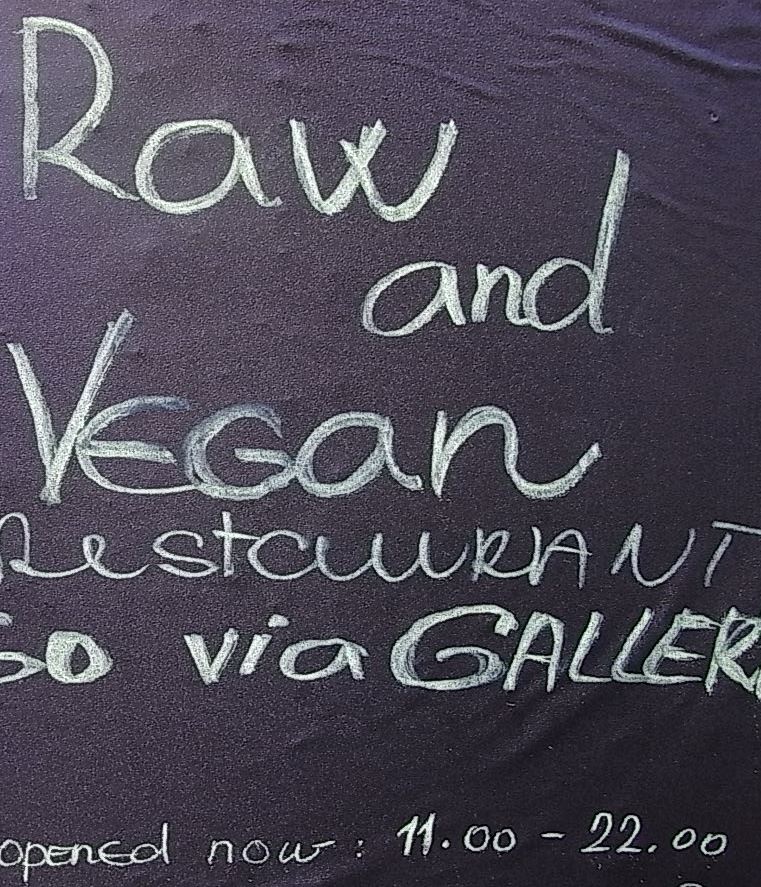 Raw
and
VEGan
RestauRANT
GO via GALLER
opened now: 11.00 - 22.00